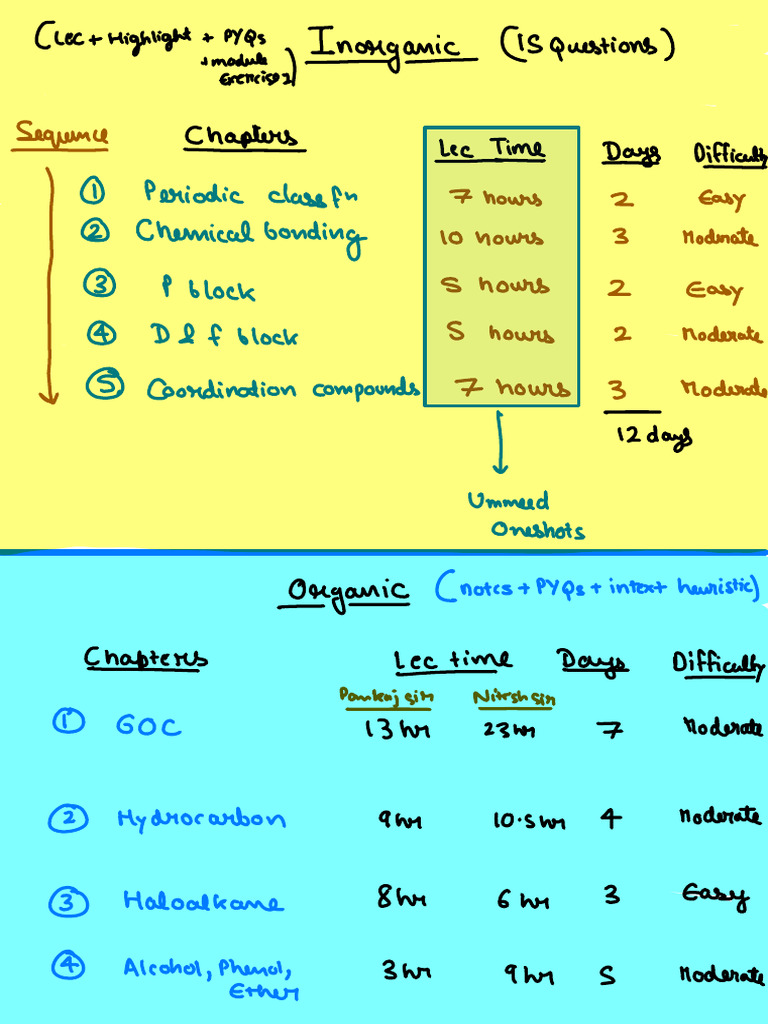 (Lec + Highlight + PYQs + module Exercise 2) Inorganic (15 Questions)
Sequence Chapters Lec Time Days Difficulty
1 Periodic classfn 7 hours 2 Easy
2 Chemical bonding 10 hours 3 Moderate
3 P block 5 hours 2 Easy
4 D & f block 5 hours 2 Moderate
5 Coordination compounds 7 hours 3 Moderate
12 days
Ummeed
Oneshots
Organic (notes + PYQs + intext + heuristic)
Chapters Lec time Days Difficulty
Pankaj sir Nitesh sir
1 GOC 13 hr 23 hr 7 Moderate
2 Hydrocarbon 9 hr 10.5 hr 4 Moderate
3 Haloalkane 8 hr 6 hr 3 Easy
4 Alcohol, Phenol, 3 hr 9 hr 5 Moderate
Ether